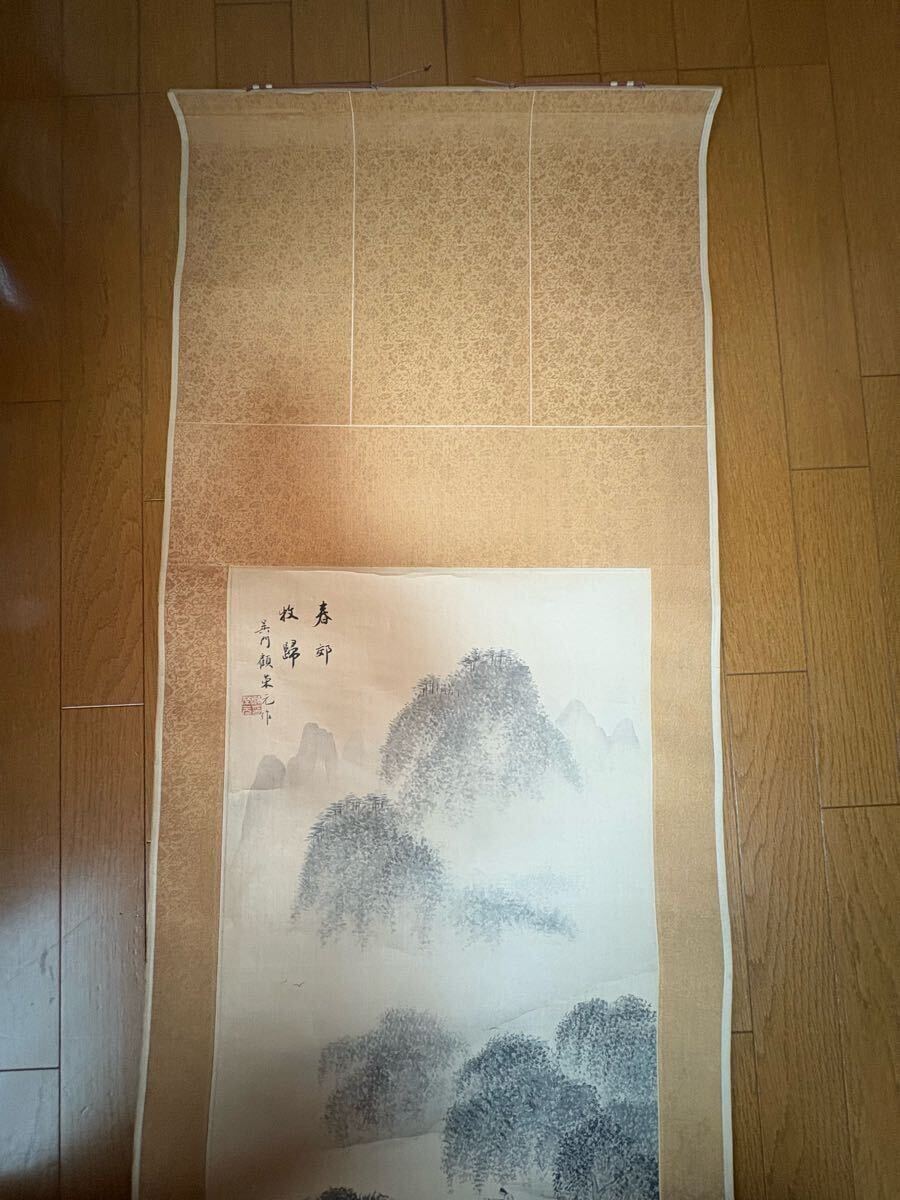 春郊
牧歸
吳門顧榮元作